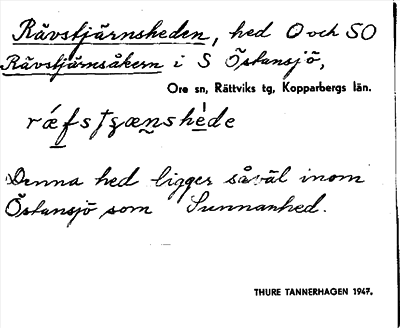 Rävstjärnsheden, hed O och SO
Rävstjärnsåkern i S Östansjö,
Ore sn, Rättviks tg, Kopparbergs län.
Denna hed ligger såväl inom
Östansjö som Sunnanhed.
THURE TANNERHAGEN 1947.